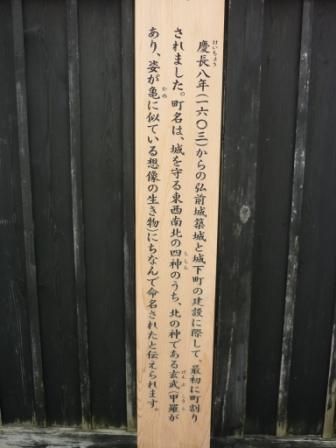 慶長八年(一六〇三)からの弘前城築城と城下町の建設に際して、最初に町割り
されました。町名は、城を守る東西南北の四神のうち、北の神である玄武(甲羅が
あり、姿が亀に似ている想像の生き物)にちなんで命名されたと伝えられます。